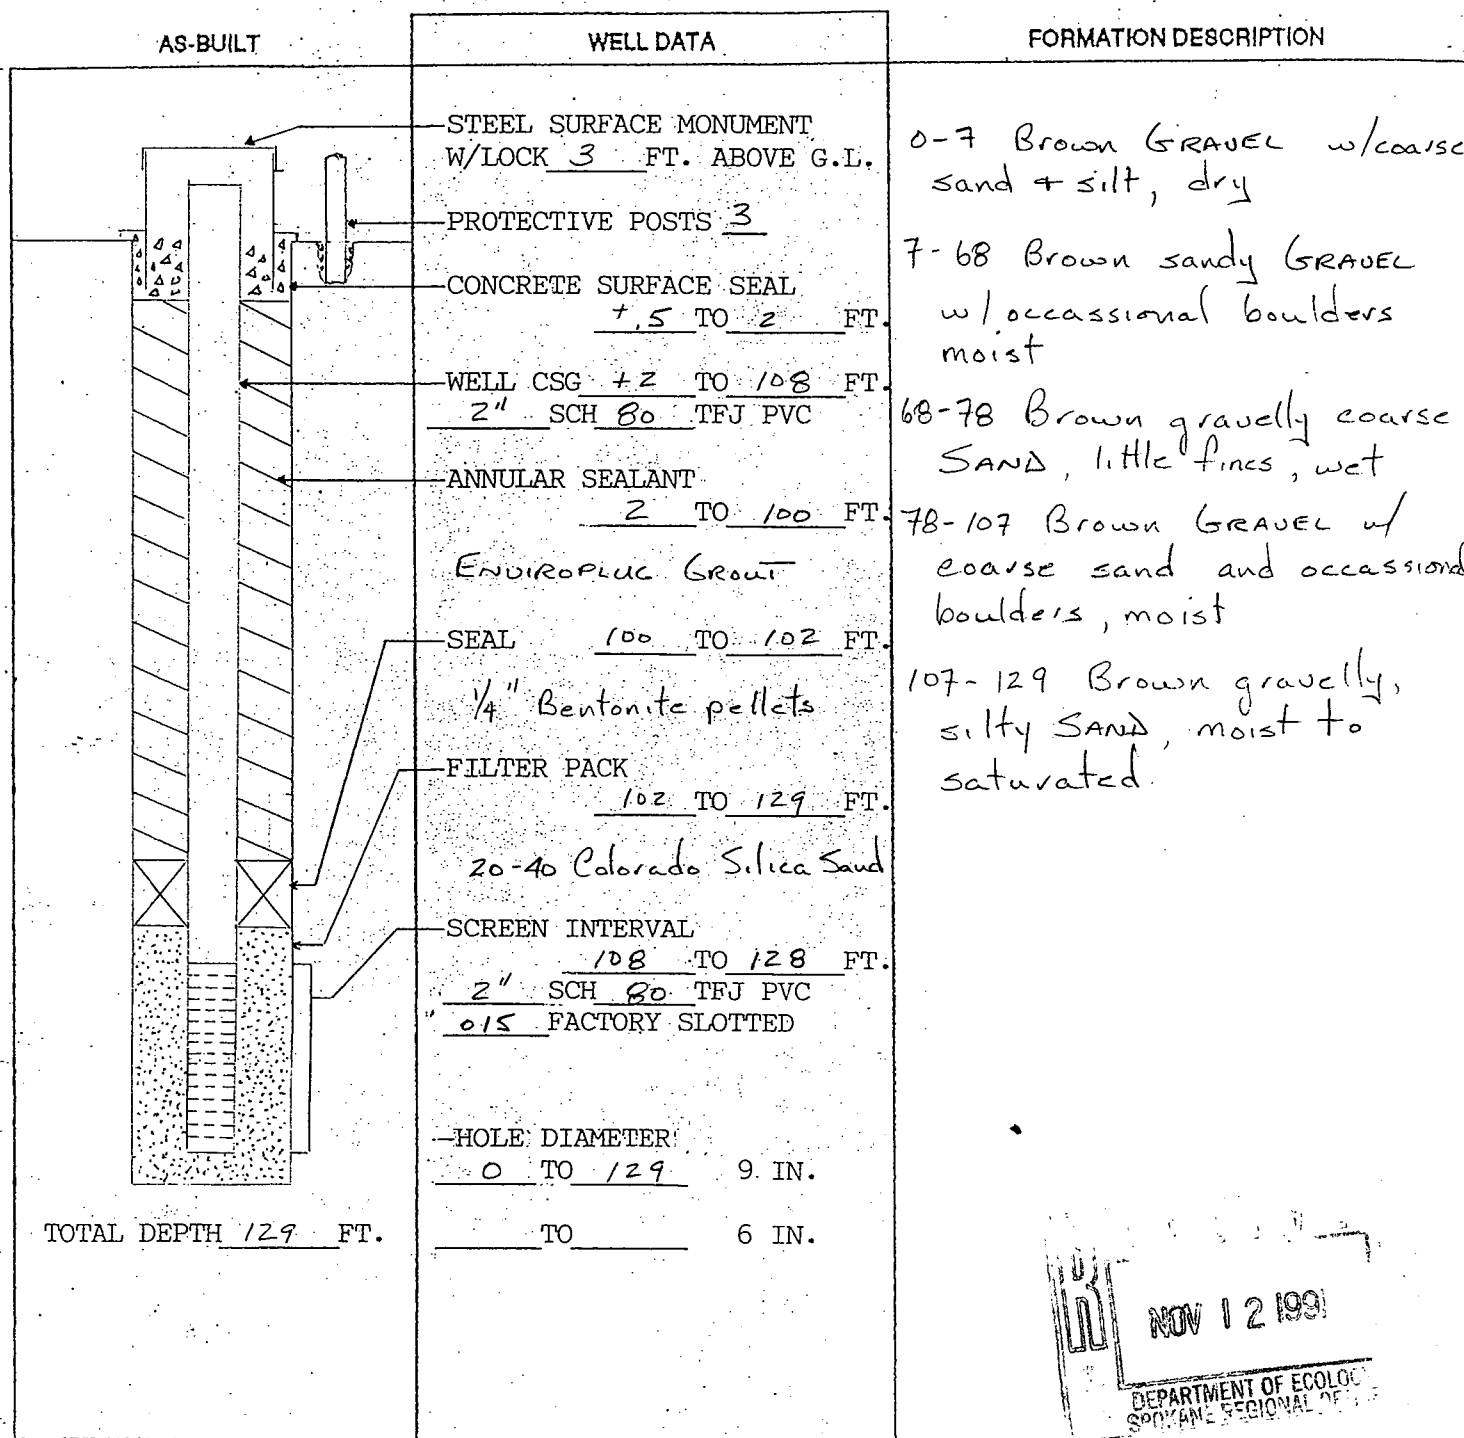 AS-BUILT
WELL DATA
FORMATION DESCRIPTION
STEEL SURFACE MONUMENT
W/LOCK 3 FT. ABOVE G.L.
PROTECTIVE POSTS 3
CONCRETE SURFACE SEAL
+.5 TO 2 FT.
WELL CSG +2 TO 108 FT.
2" SCH 80 TFJ PVC
ANNULAR SEALANT
2 TO 100 FT.
ENVIROPLUG GROUT
SEAL 100 TO 102 FT.
1/4" Bentonite pellets
FILTER PACK
102 TO 129 FT.
20-40 Colorado Silica Sand
SCREEN INTERVAL
108 TO 128 FT.
2" SCH 80 TFJ PVC
" 015 FACTORY SLOTTED
HOLE DIAMETER
0 TO 129 9 IN.
TO 6 IN.
TOTAL DEPTH 129 FT.
0-7 Brown GRAVEL w/coarse
sand + silt, dry
7-68 Brown sandy GRAVEL
w/ occassional boulders
moist
68-78 Brown gravelly coarse
SAND, little fines, wet
78-107 Brown GRAVEL w/
coarse sand and occassional
boulders, moist
107-129 Brown gravelly,
silty SAND, moist to
saturated.
NOV 12 1991
DEPARTMENT OF ECOLOG
SPOKANE REGIONAL